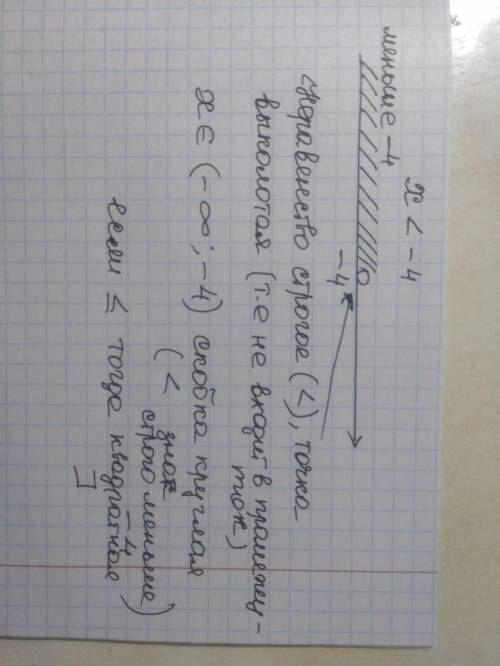 x < -4
меньше -4
-4
Неравенство строгое (<), точка
выколотая (т.е не входит в промежу-
ток)
x ∈ (-∞; -4) скобка круглая
(< знак
строго меньше)
-4
если ≤ тогда квадратная
]